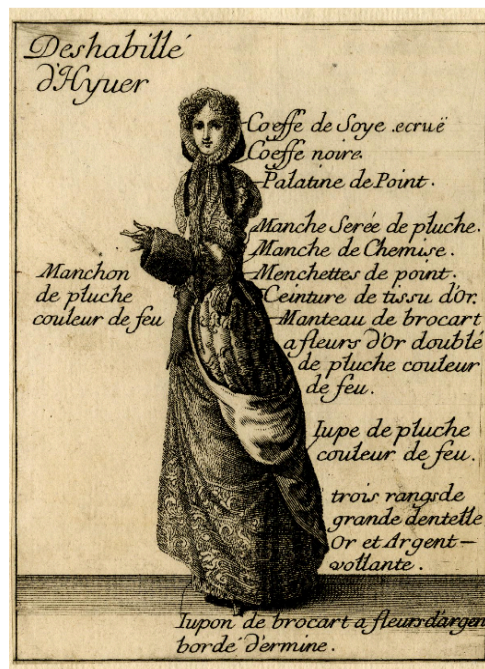 Deshabillé
d'Hyuer
Coeffe de Soye .ecruë
Coeffe noire.
Palatine de Point.
Manche Serée de pluche.
Manche de Chemise.
Menchettes de point.
Ceinture de tissu d'Or.
Manteau de brocart
a fleurs d'Or doublé
de pluche couleur
de feu.
Manchon
de pluche
couleur de feu
Iupe de pluche
couleur de feu.
trois rangs de
grande dentelle
Or et Argent
vollante.
Iupon de brocart a fleurs d'argen
bordé d'ermine.